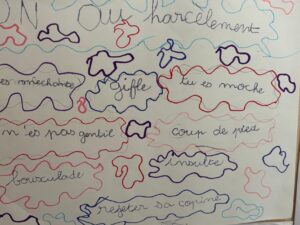 ON ou harcèlement
es méchante
Giffle
tu es moche
n'es pas gentil
coup de pied
Insulte
bousculade
rejeter sa copine